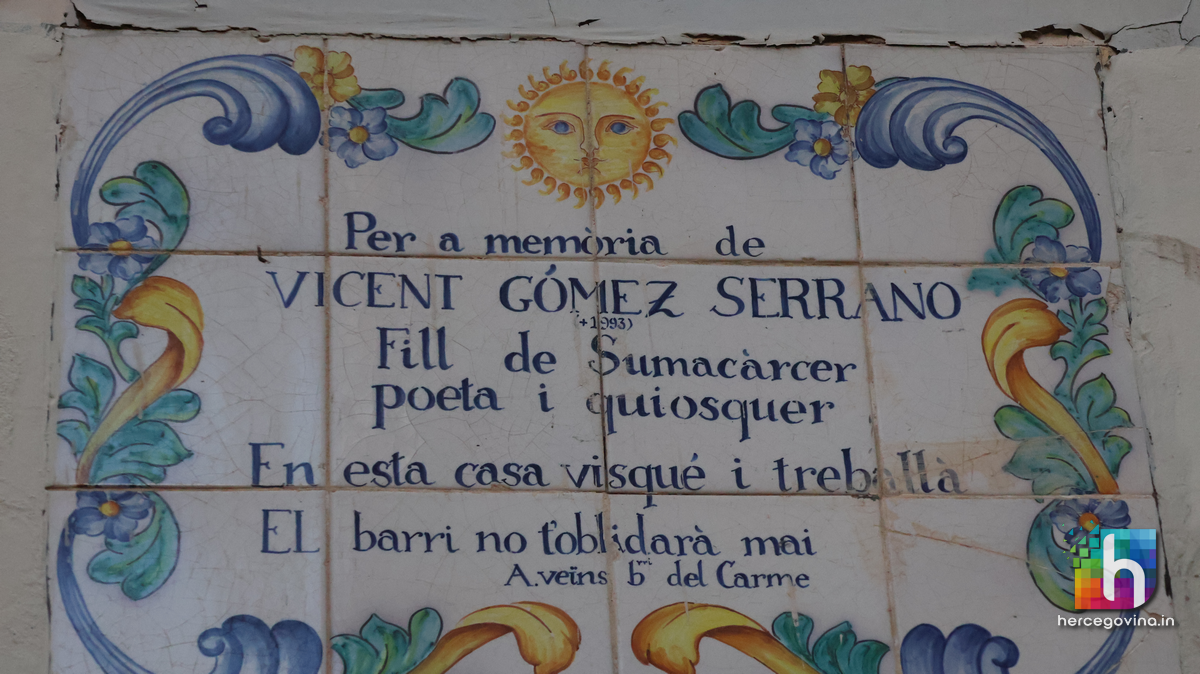 Per a memòria de
VICENT GÓMEZ SERRANO
(+1993)
Fill de Sumacàrcer
poeta i quiosquer
En esta casa visqué i treballà
EL barri no t'oblidarà mai
A.veïns b.rri del Carme
h
hercegovina.in